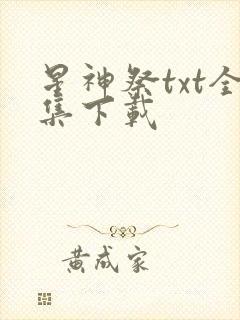 星神祭txt全
集下载
黄成家